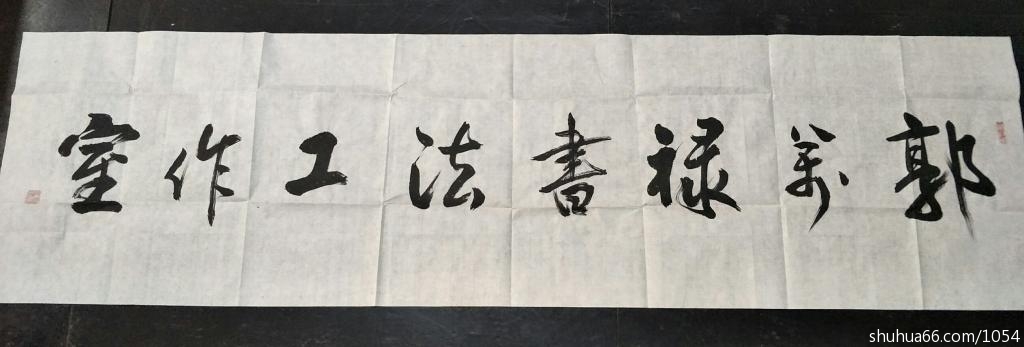 郭萬禄書法工作室
shuhua66.com/1054